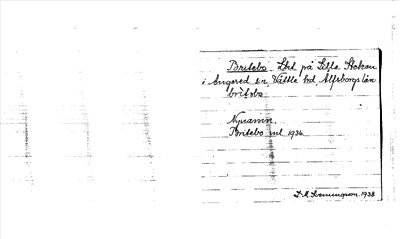 Britebo Lht på Lilla Stokan
i Angered sn, Vättle hd, Älfsborgs län
britebo
Nynamn.
Britebo ml 1934
D. A. Svenungson. 1938